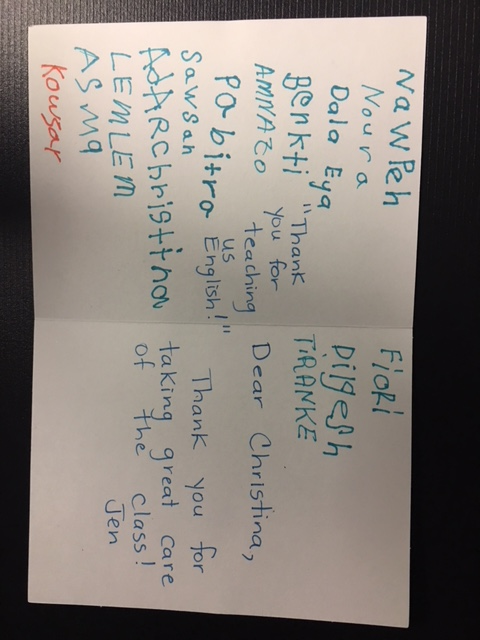 NaWPeh
Noura
Dala Eya
Benkti
AMNAZO
"Thank
you for
teaching
us
English!"
Pabitra
Sawsan
AdARChristina
LEMLEM
ASMa
Kowsar
FiORi
Digesh
TiRANKE
Dear Christina,
Thank you for
taking great care
of the class!
Jen